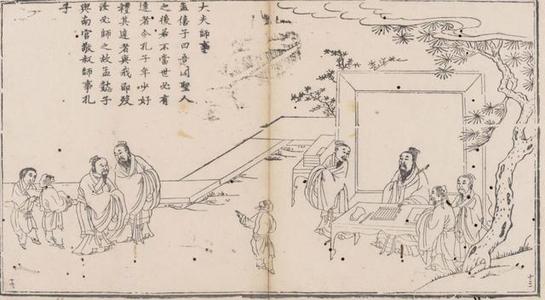 大夫師事
孟僖子曰吾聞聖人
之後若不當世必有
達者今孔子年少好
禮其達者與我即歿
汝必師之故孟懿子
與南宮敬叔師事孔
子